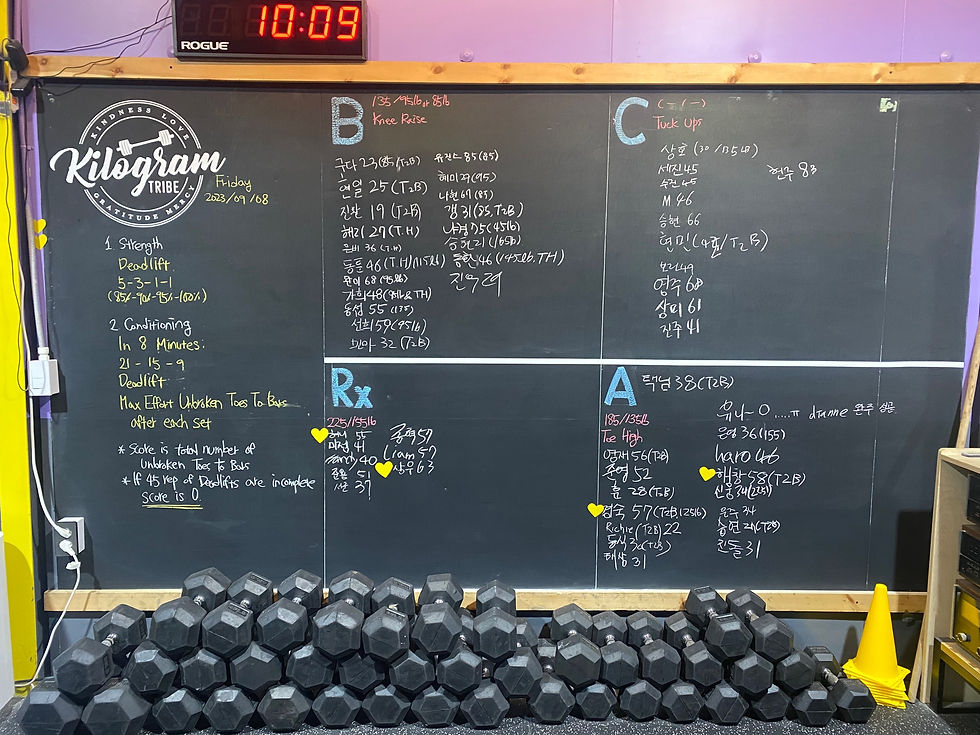 10:09
ROGUE
KINDNESS LOVE
Kilogram
TRIBE
GRATITUDE MERCY
Friday
2023/09/08
1. Strength
Deadlift
5-3-1-1
(85%-90%-95%-100%)
2. Conditioning
In 8 Minutes:
21 - 15 - 9
Deadlift
Max Effort Unbroken Toes To Bars
after each set
* Score is total number of
Unbroken Toes to Bars
* If 45 rep of Deadlifts are incomplete
Score is 0.
B
135/95lb or 85lb
Knee Raise
23(85/T2B)
현일 25 (T2B)
19 (T2B)
해리 27 (T.H)
은비 36 (T.H)
동훈 46 (T.H)(115lb)
68 (95lb)
가희 48 (95lb & TH)
동섭 55 (135)
선희 59 (95lb)
32 (T2B)
85(85)
혜미 29(95)
나현 67(85)
갬 31(55, T2B)
나영 75(45lb)
승현 21(65lb)
동현 46(145lb, TH)
29
C
Tuck Ups
상호 (30/B5
세진 45
45
M 46
승현 66
현민 (4표/T2B)
보라 49
영주 68
상미 61
진주 41
현주 83
Rx
225/155lb
55
미정 41
40
51
37
57
Liam 57
상우 63
A
택님 38(T2B)
185/135lb
Toe High
영재 56(T2B)
준영 52
훈 28(T2B)
영숙 57(T2B 125lb)
Richie (T2B) 22
동식 30(T2B)
태상 31
유나~ 0 ....ㅠ dianne 완주 성공
은영 36(155)
haro 46
해창 58(T2B)
은주 34
승연 20(T2B)
진돌 31